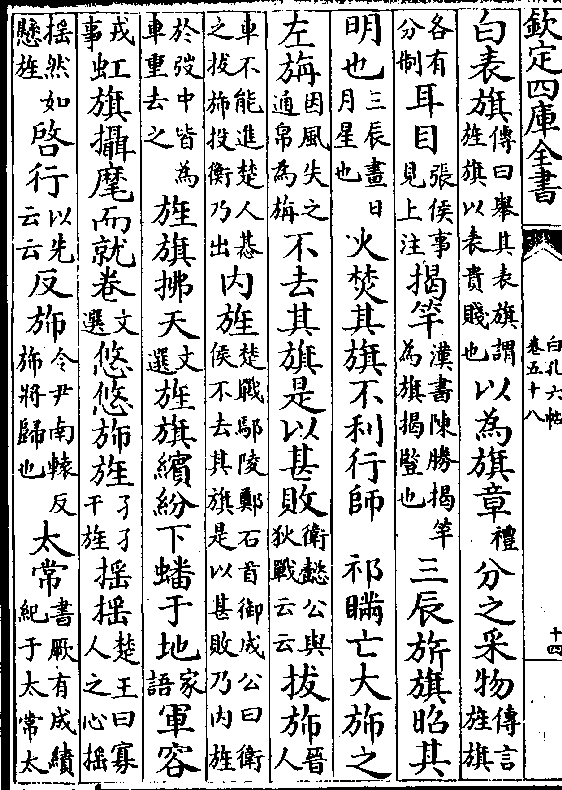 欽定四庫全書
白孔六帖
卷五十八
十四
白表旗傳曰舉其表旗謂旌旗以表貴賤也以為旗章禮分之采物傳言旌旗
各有分制耳目張侯事見上注揭竿漢書陳勝揭竿為旗揭豎也三辰旂旗昭其
明也三辰畫日月星也火焚其旗不利行師 祁瞞亡大斾之
左旃因風失之通帛為旃不去其旗是以甚敗衛懿公與狄戰云云拔斾晉人
車不能進楚人惎之拔斾投衡乃出内旌楚戰鄢陵鄭石首御成公曰衛侯不去其旗是以甚敗乃内旌
於弢中皆為車重去之旌旗拂天文選旌旗繽紛下蟠于地家語軍容
戎事虹旗攝麾而就卷文選悠悠斾旌孑孑干旌揺揺楚王曰寡人之心揺
揺然如懸旌啓行以先云云反斾令尹南轅反斾將歸也太常書厥有成績紀于太常太